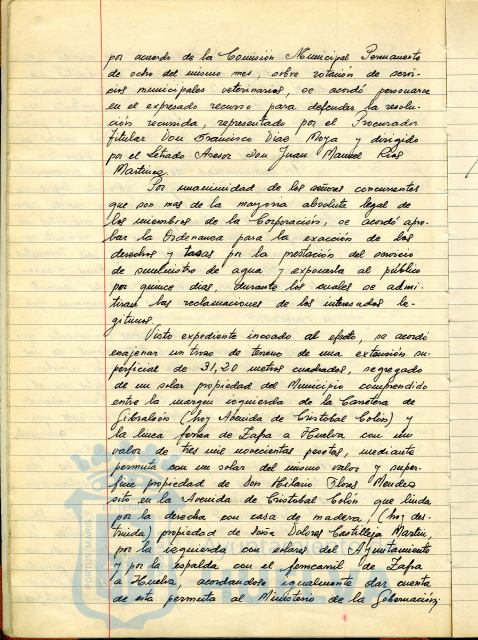 por acuerdo de la Comisión Municipal Permanente
de ocho del mismo mes, sobre rotación de servi-
cios municipales veterinarios, se acordó personarse
en el expresado recurso para defender la resolu-
ción recurrida, representado por el Procurador
titular Don Francisco Díaz Moya y dirigido
por el Letrado Asesor Don Juan Manuel Rios
Martinez
Por unanimidad de los señores concurrentes
que son mas de la mayoria absoluta legal de
los miembros de la Corporación, se acordó apro-
bar la Ordenanza para la exacción de los
derechos y tasas por la prestación del servicio
de suministro de agua y exponerla al público
por quince dias, durante los cuales se admi-
tiran las reclamaciones de los interesados le-
gitimos.
Visto expediente incoado al efecto, se acordó
enajenar un trozo de terreno de una extensión su-
perficial de 31,20 metros cuadrados, segregado
de un solar propiedad del Municipio comprendido
entre la margen izquierda de la Carretera de
Gibraleón (hoy Avenida de Cristobal Colón) y
la linea ferrea de Zafra a Huelva con un
valor de tres mil novecientas pesetas, mediante
permuta con un solar del mismo valor y super-
ficie propiedad de Don Hilario Flores Mendez
sito en la Avenida de Cristobal Colón que linda
por la derecha con casa de madera, (hoy des-
truida) propiedad de Doña Dolores Castilleja Martin,
por la izquierda con solares del Ayuntamiento
y por la espalda con el ferrocarril de Zafra
a Huelva, acordandose igualmente dar cuenta
de esta permuta al Ministerio de la Gobernación;